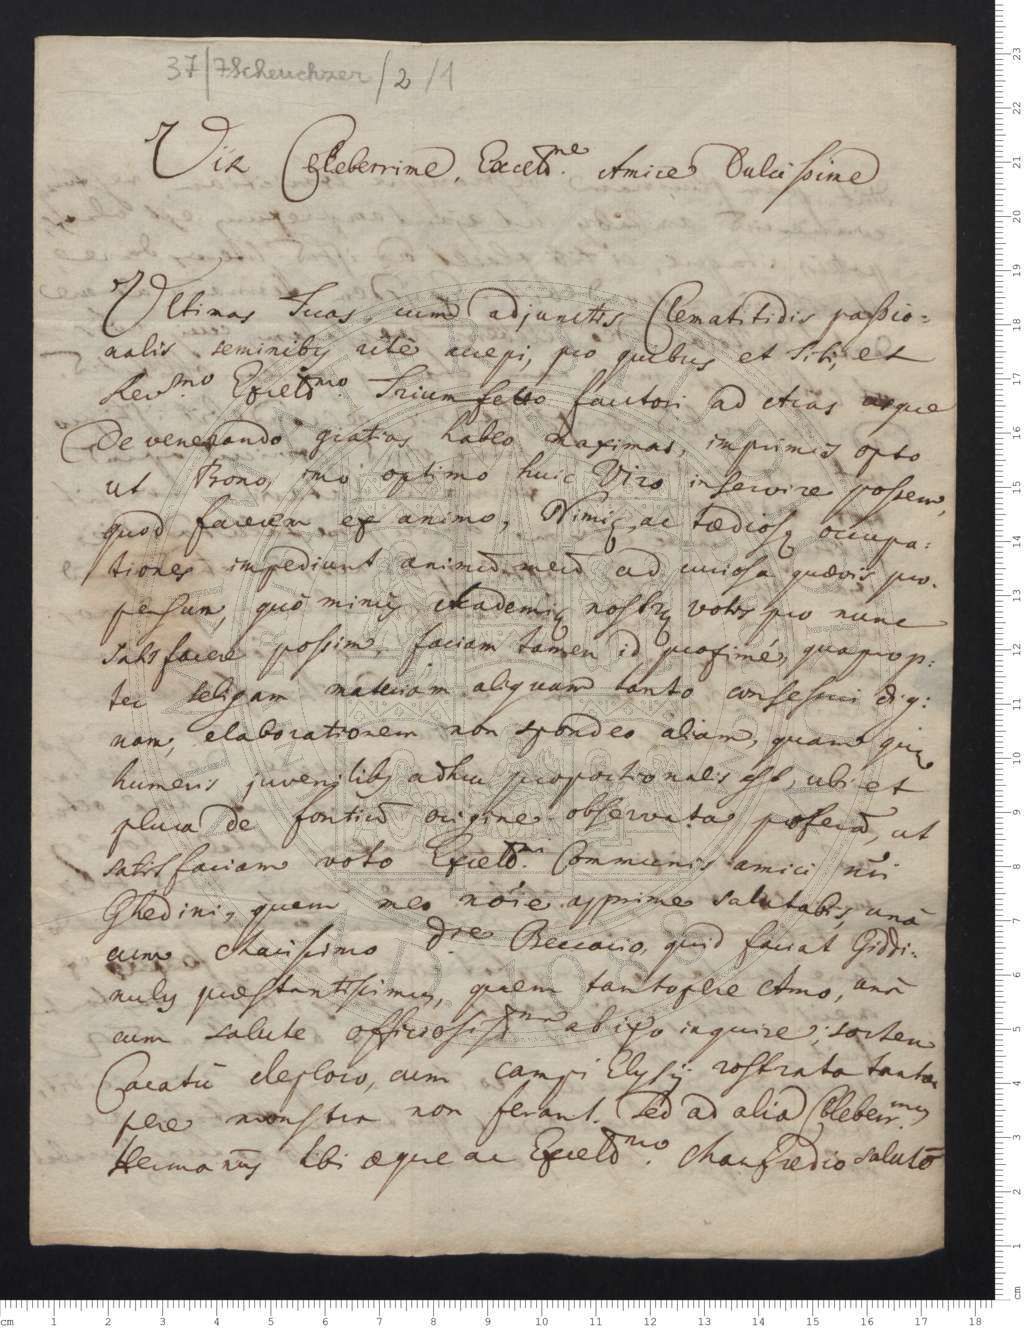 37/7Scheuchzer/2/1
Vir Celeberrime, Excell.me Amice Dulcissime
Ultimas Tuas cum adjunctis Clematitidis passio=
nalis seminibus rite accepi, pro quibus et Tibi, et
Rev.mo Excell.mo Triumfetto fautori ad Aras usque
Devenerando gratias habeo maximas, imprimis opto
ut Bono, imo optimo huic Viro inservire possem,
quod facerem ex animo, Nimiae ac taediosae occupa:
tiones impediunt animum meum ad curiosa quaevis pro-
pensum, quo minus Academiae nostrae votis pro nunc
satisfacere possim, faciam tamen id proxime, quaprop:
ter seligam materiam aliquam tanto consessui dig:
nam, elaborationem non spondeo aliam, quam quae
humeris juvenilibus adhuc proportionalis est, ubi et
plura de fontium origine observata proferam, ut
satisfaciam voto Excell.mi Communis amici nri
Ghedini, quem meo noie apprime salutabis, una
cum charissimo D.re Beccario, quid faciat Giddi:
nulus praestantissimus, quem tantopere Amo, una
cum salute officiosissima ab ipso inquire, sortem
deploro, cum campi Elysij rostrata tanto
pere monstra non ferant. Sed ad alia Celeberr.mus
Hermanus tibi aeque ac Excell.mo Manfredio salutem